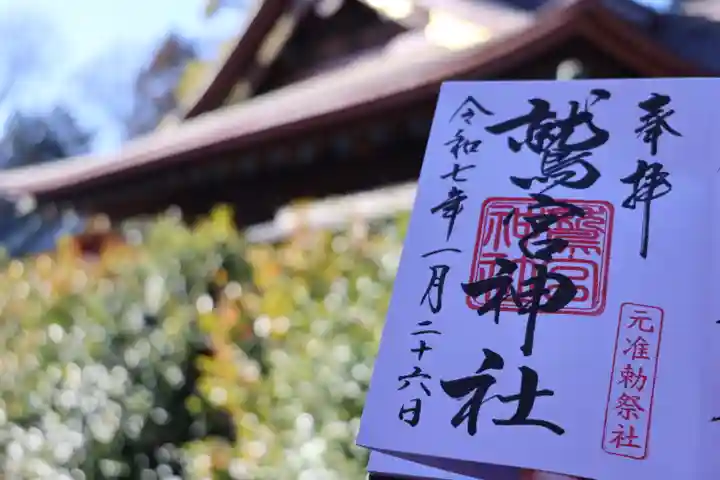 奉拝
元准勅祭社
鷲宮神社
令和七年一月二十六日